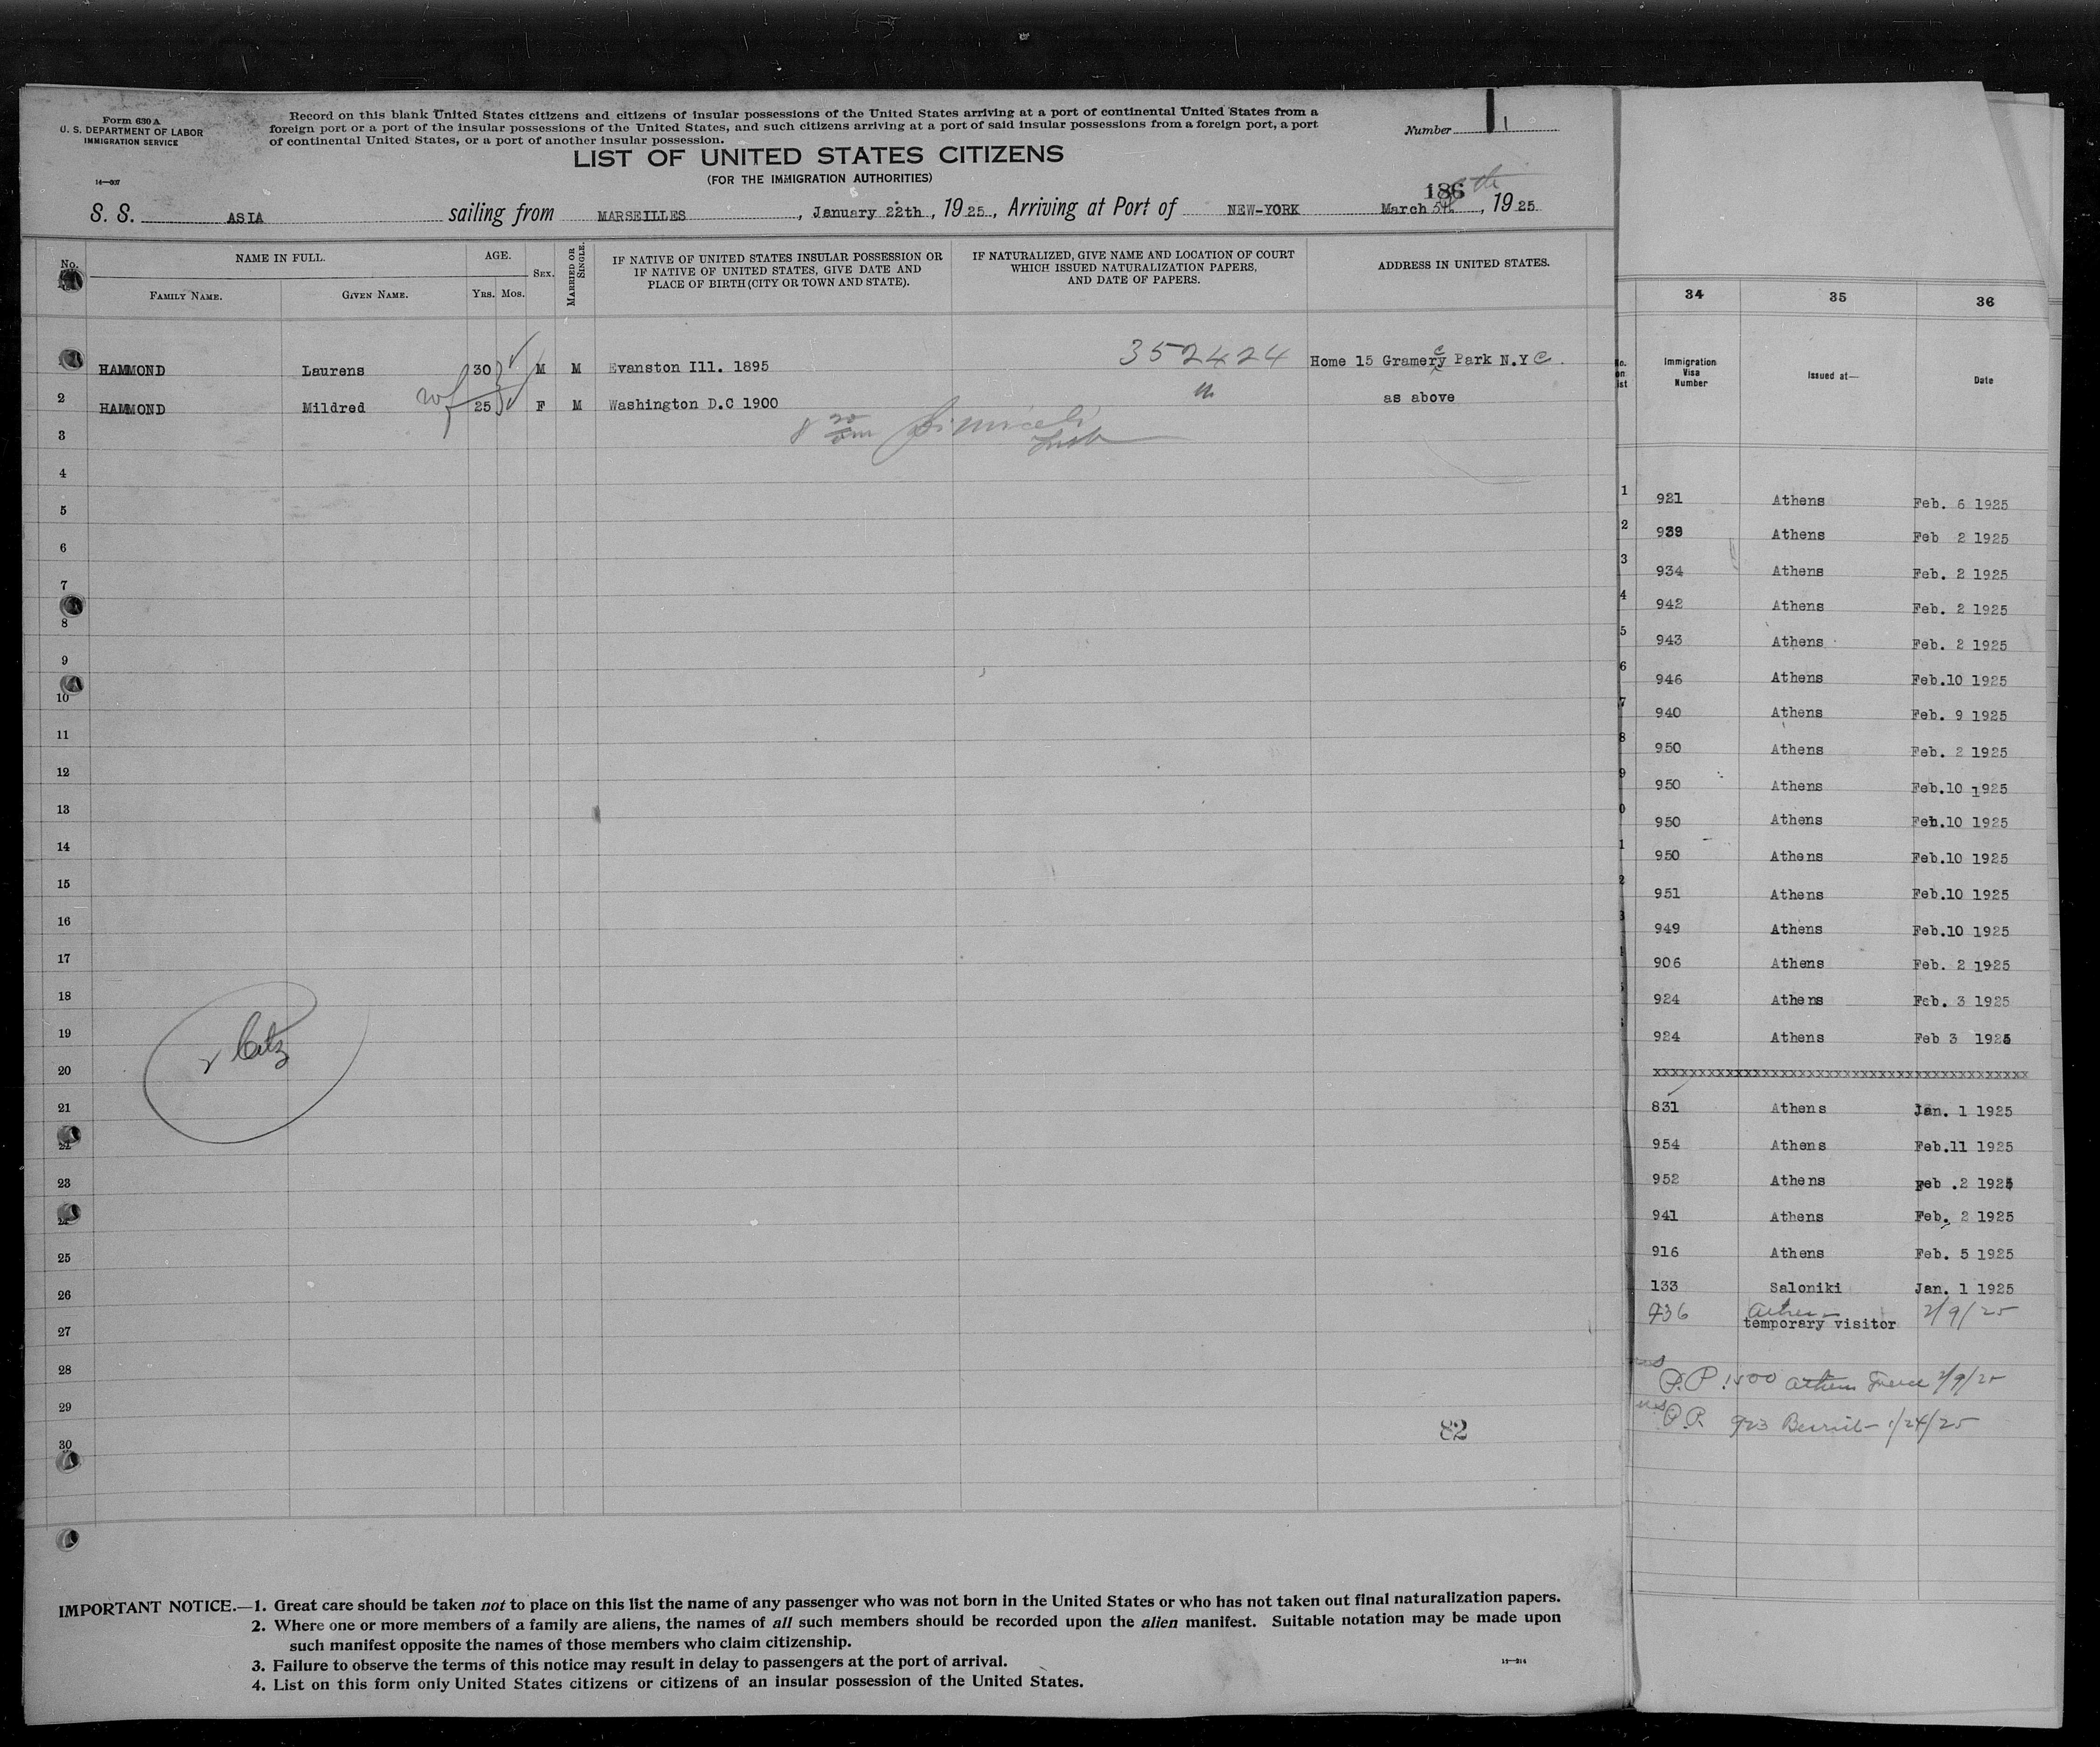 Form 630 A
U. S. DEPARTMENT OF LABOR
IMMIGRATION SERVICE
14—607
Record on this blank United States citizens and citizens of insular possessions of the United States arriving at a port of continental United States from a
foreign port or a port of the insular possessions of the United States, and such citizens arriving at a port of said insular possessions from a foreign port, a port
of continental United States, or a port of another insular possession.
Number 1
LIST OF UNITED STATES CITIZENS
(FOR THE IMMIGRATION AUTHORITIES)
186
S. S. ASIA sailing from MARSEILLES, January 22th, 1925, Arriving at Port of NEW-YORK March 5th, 1925
No. NAME IN FULL. AGE. SEX. MARRIED OR SINGLE. IF NATIVE OF UNITED STATES INSULAR POSSESSION OR IF NATIVE OF UNITED STATES, GIVE DATE AND PLACE OF BIRTH (CITY OR TOWN AND STATE). IF NATURALIZED, GIVE NAME AND LOCATION OF COURT WHICH ISSUED NATURALIZATION PAPERS, AND DATE OF PAPERS. ADDRESS IN UNITED STATES.
FAMILY NAME. GIVEN NAME. YRS. MOS.
352424
HAMMOND Laurens 30 M M Evanston Ill. 1895 Home 15 Gramercy Park N.Y C.
2 HAMMOND Mildred 25 F M Washington D.C 1900 as above
3
4
5
6
7
8
9
10
11
12
13
14
15
16
17
18
19
2 Citz
20
21
22
23
24
25
26
27
28
29
82
30
IMPORTANT NOTICE.—1. Great care should be taken not to place on this list the name of any passenger who was not born in the United States or who has not taken out final naturalization papers.
2. Where one or more members of a family are aliens, the names of all such members should be recorded upon the alien manifest. Suitable notation may be made upon
such manifest opposite the names of those members who claim citizenship.
3. Failure to observe the terms of this notice may result in delay to passengers at the port of arrival.
4. List on this form only United States citizens or citizens of an insular possession of the United States.
34 35 36
Immigration Visa Number Issued at— Date
1 921 Athens Feb. 6 1925
2 939 Athens Feb 2 1925
3 934 Athens Feb. 2 1925
4 942 Athens Feb. 2 1925
5 943 Athens Feb. 2 1925
6 946 Athens Feb.10 1925
7 940 Athens Feb. 9 1925
8 950 Athens Feb. 2 1925
9 950 Athens Feb.10 1925
0 950 Athens Feb.10 1925
1 950 Athens Feb.10 1925
2 951 Athens Feb.10 1925
3 949 Athens Feb.10 1925
906 Athens Feb. 2 1925
924 Athens Feb. 3 1925
924 Athens Feb 3 1925
xxxxxxxxxxxxxxxxxxxxxxxxxxxxxxxxxxxxxxxxxx
831 Athens Jan. 1 1925
954 Athens Feb.11 1925
952 Athens Feb .2 1925
941 Athens Feb. 2 1925
916 Athens Feb. 5 1925
133 Saloniki Jan. 1 1925
936 Athens 2/9/25
temporary visitor
P.P. Athens Greece 2/9/25
P.P. 923 Beirut 1/24/25